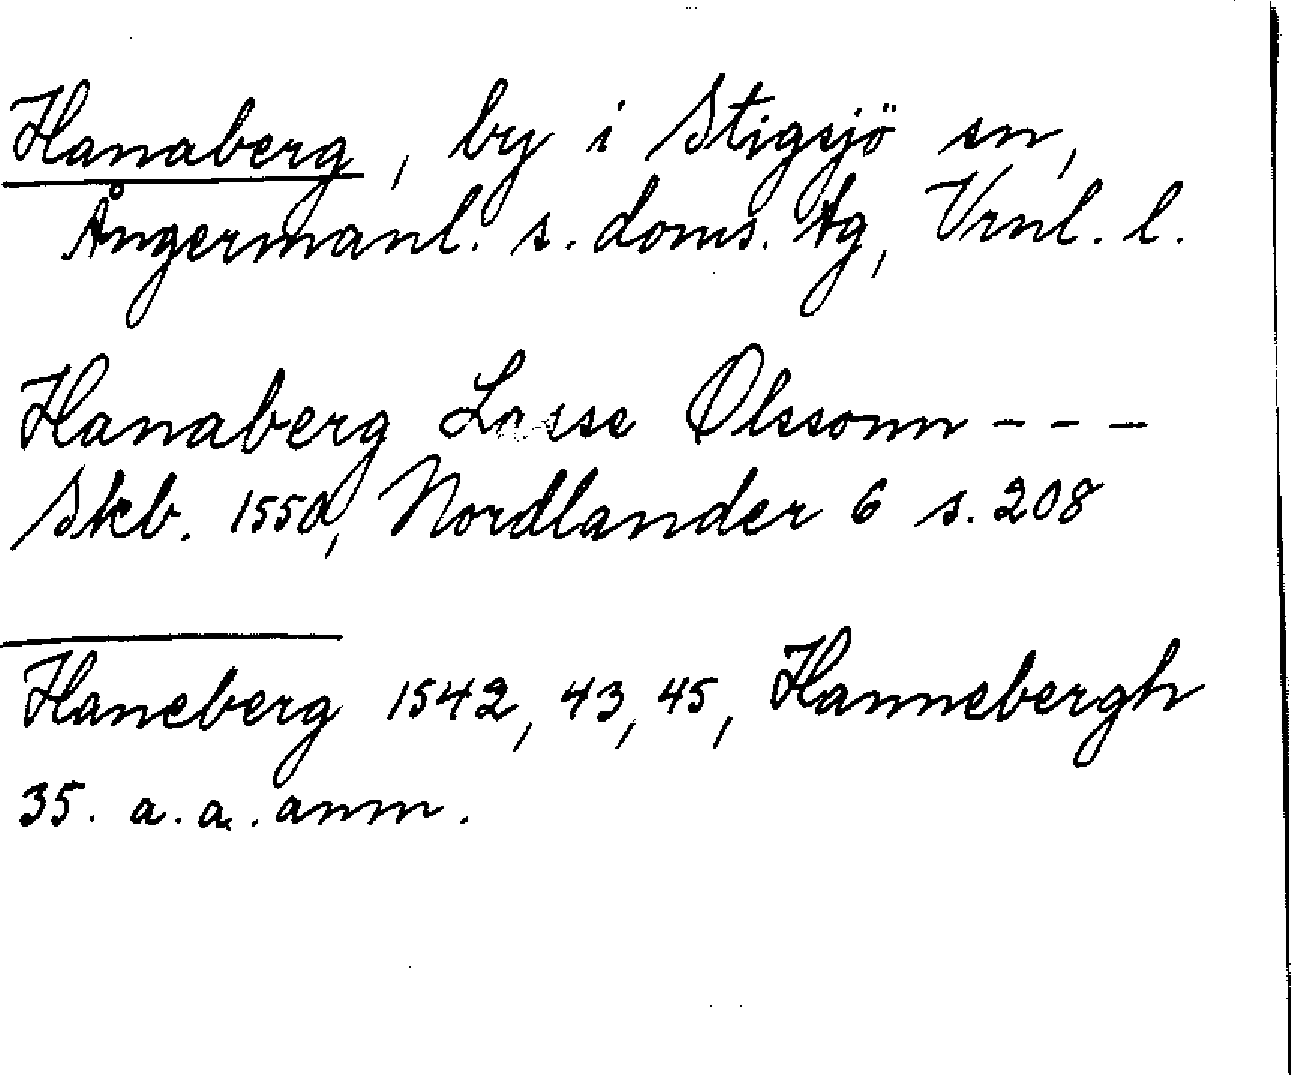 Hanaberg, by i Stigsjö sn,
Ångermanl. s. doms. tg, Vrnl. l.
Hanaberg Lasse Olssonn - - -
Skb. 1550, Nordlander 6 s. 208
Haneberg 1542, 43, 45, Hannebergh
35. a. a. anm.